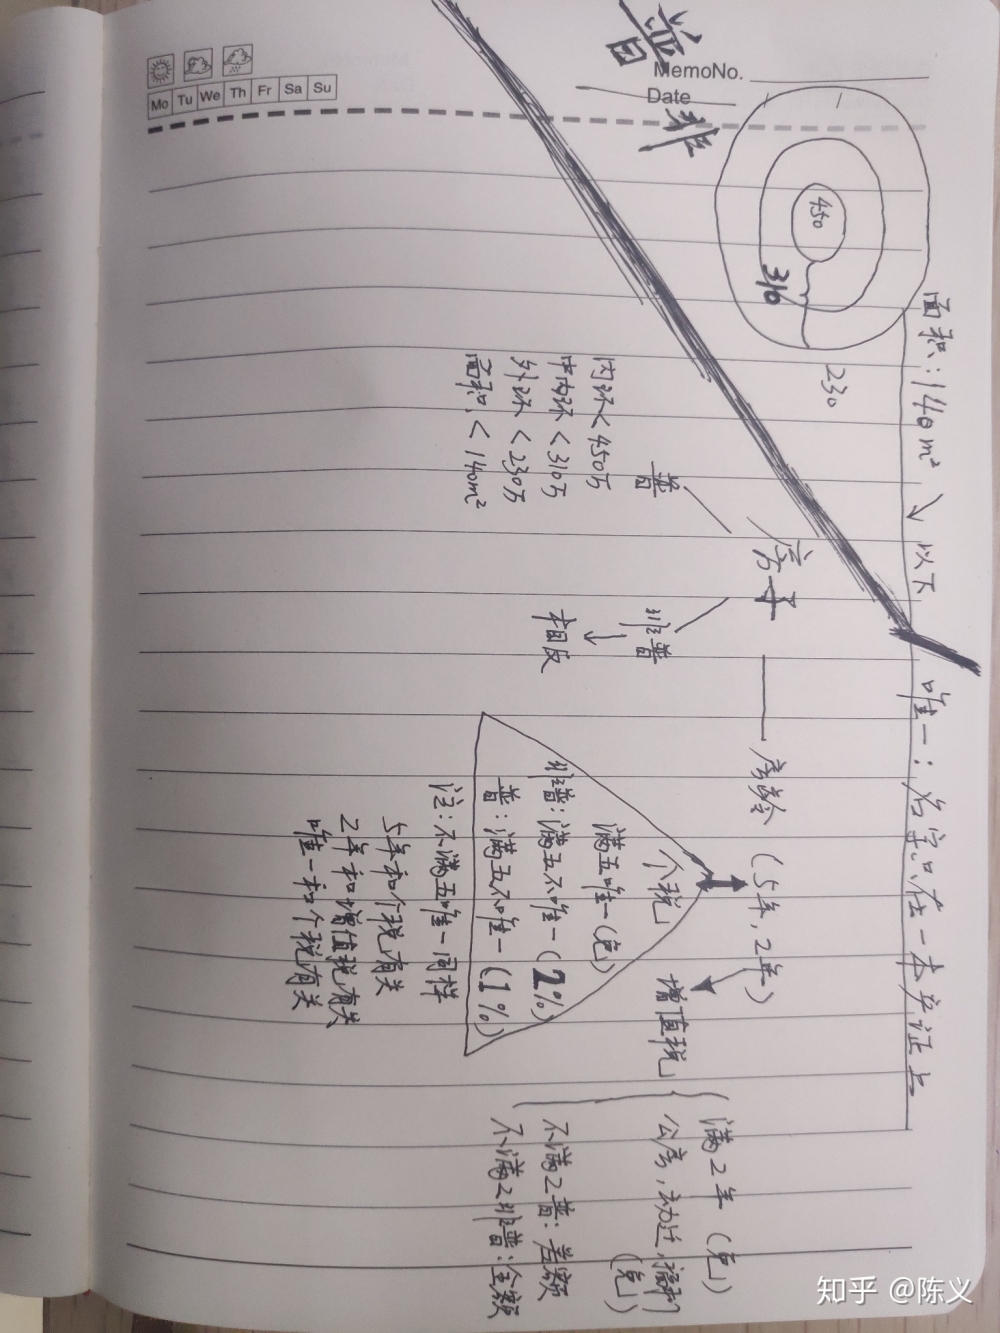 普
非
MemoNo.
Date
Mo Tu We Th Fr Sa Su
450
310
230
面积:140m² 以下
唯一:名字只在一本产证上
房子
普
内环<450万
中内环<310万
外环<230万
面积<140m²
非普
相反
房龄
(5年,2年)
个税
满五唯一(免)
非普:满五不唯一(2%)
普:满五不唯一(1%)
注:不满五唯一同样
5年和个税有关
2年和增值税有关
唯一和个税有关
增值税
满2年(免)
公房,动迁,
(免)
不满2普:差额
不满2非普:全额
知乎 @陈义